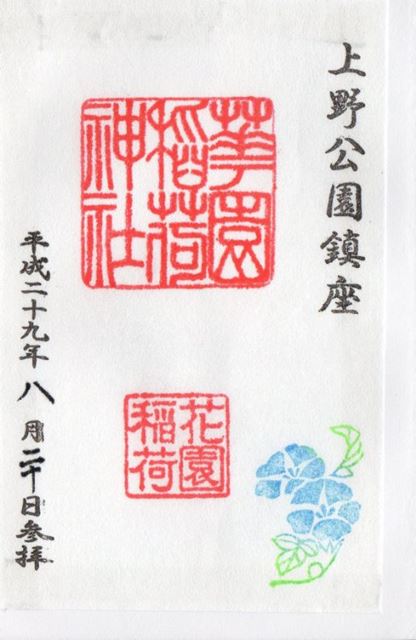 上野公園鎮座
華園
稲荷
神社
花園
稲荷
平成二十九年八月二十日参拝